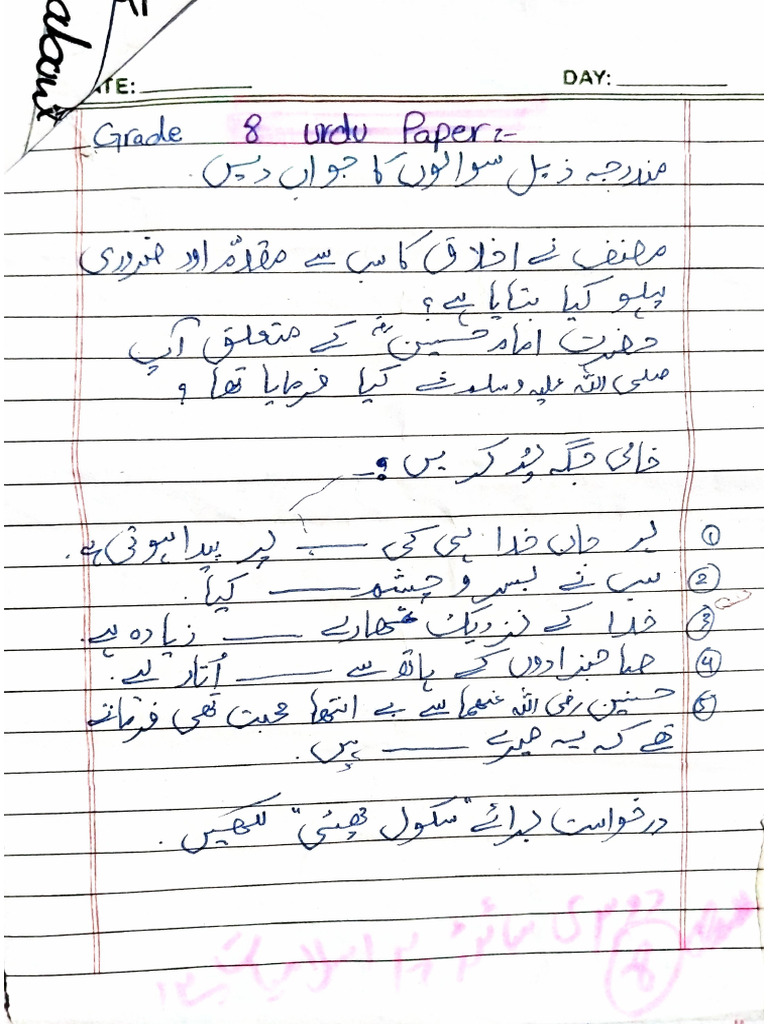 DATE: ________ DAY: ________
Grade 8 urdu Paper:-
مندرجہ ذیل سوالوں کا جواب دیں.
مصنف نے اخلاق کا سب سے مقدّم اور ضروری
پہلو کیا بتایا ہے؟
حضرت امام حسینؓ کے متعلق آپ
صلی اللہ علیہ وسلم نے کیا فرمایا تھا؟
خالی جگہ پُر کریں :-
① ہر جان خدا ہی کی ــــــ پر پیدا ہوتی ہے.
② سب نے بسر و چشم ــــــ کیا.
③ خدا کے نزدیک تمھارے ــــــ زیادہ ہے.
④ صاحبزادوں کے ہاتھ سے ــــــ اُتار لیے.
⑤ حسنین رضی اللہ عنھما سے بے انتھا محبت تھی فرماتے
تھے کہ یہ میرے ــــــ ہیں.
درخواست برائے "سکول چھٹی" لکھیں.